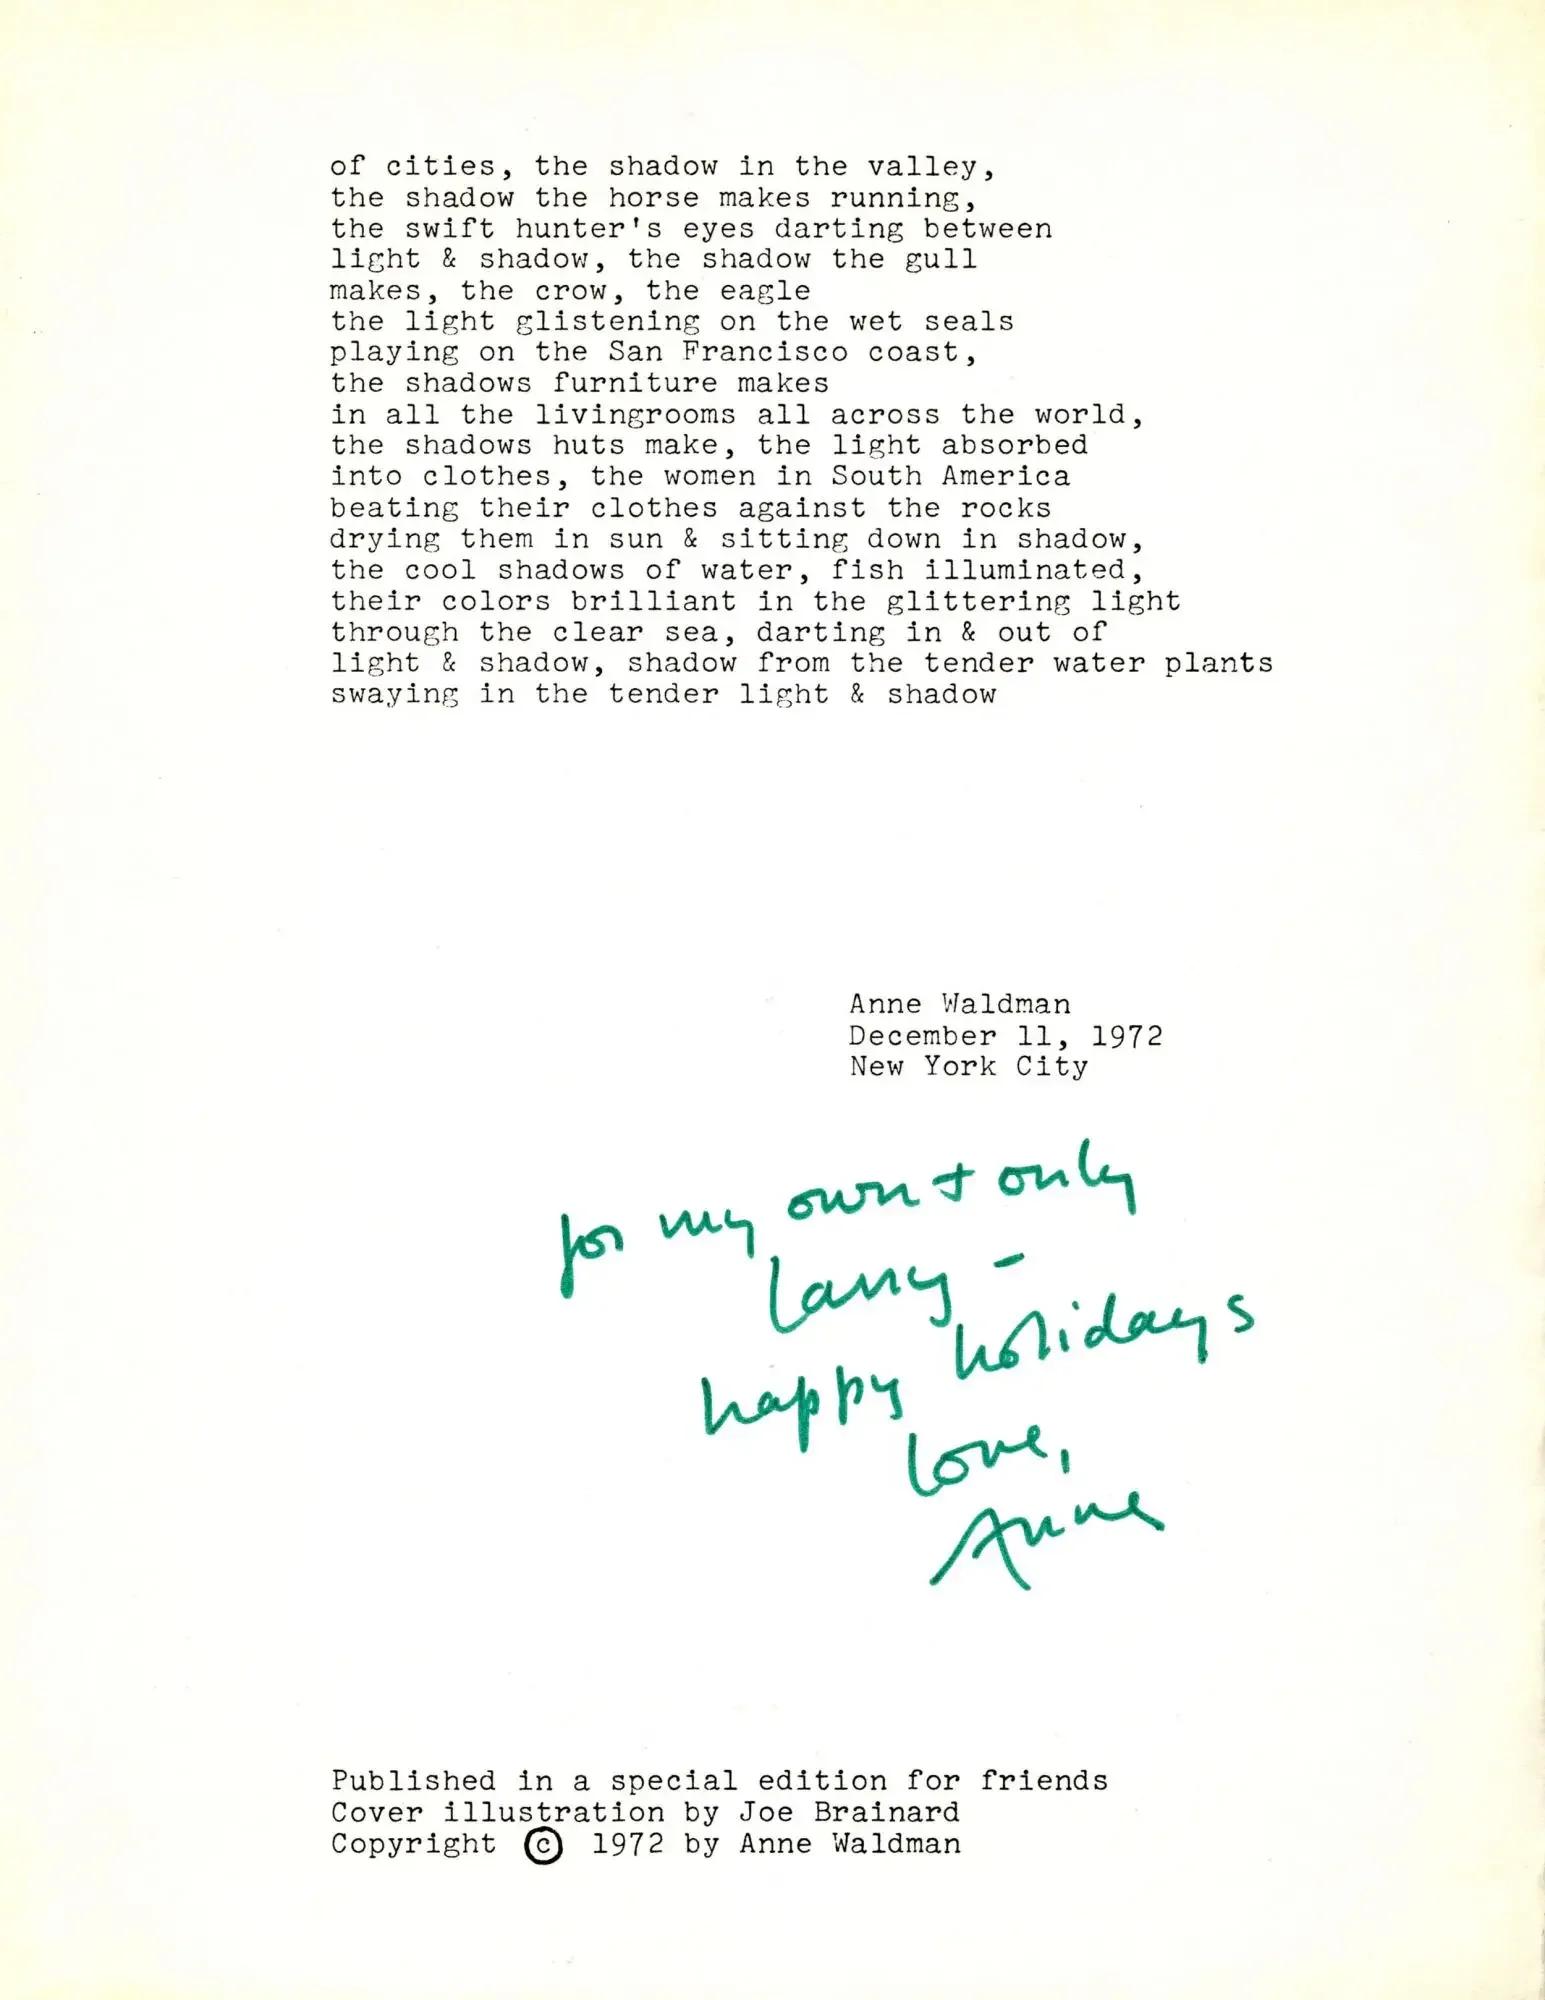 of cities, the shadow in the valley,
the shadow the horse makes running,
the swift hunter's eyes darting between
light & shadow, the shadow the gull
makes, the crow, the eagle
the light glistening on the wet seals
playing on the San Francisco coast,
the shadows furniture makes
in all the livingrooms all across the world,
the shadows huts make, the light absorbed
into clothes, the women in South America
beating their clothes against the rocks
drying them in sun & sitting down in shadow,
the cool shadows of water, fish illuminated,
their colors brilliant in the glittering light
through the clear sea, darting in & out of
light & shadow, shadow from the tender water plants
swaying in the tender light & shadow
Anne Waldman
December 11, 1972
New York City
for my own + only
Larry -
happy holidays
love,
Anne
Published in a special edition for friends
Cover illustration by Joe Brainard
Copyright © 1972 by Anne Waldman